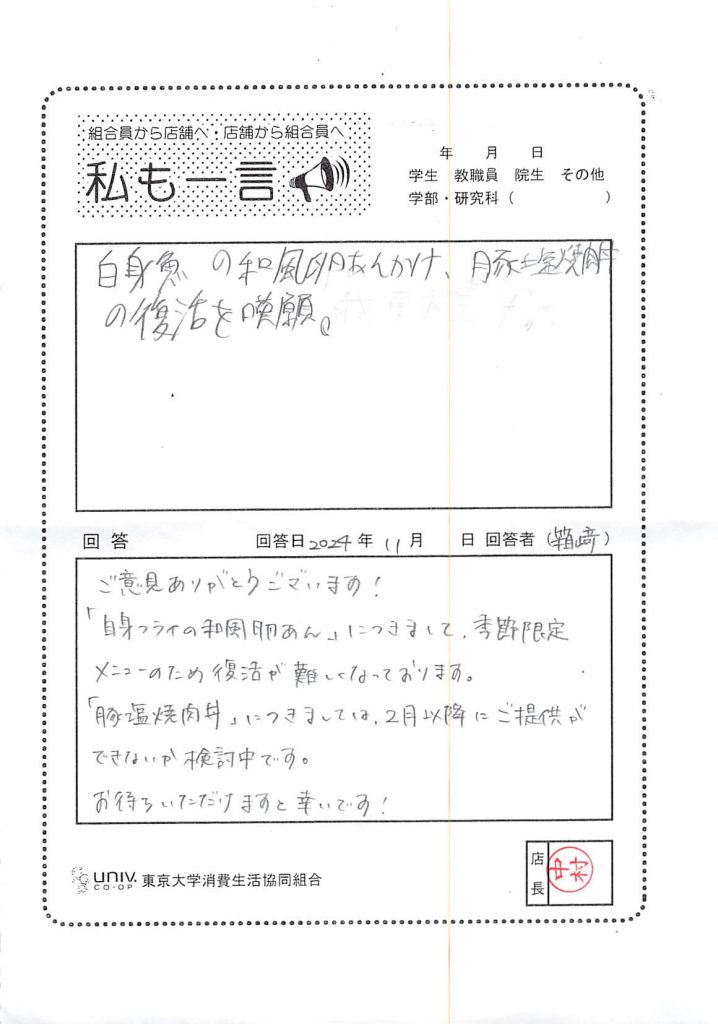 組合員から店舗へ・店舗から組合員へ
私も一言
年 月 日
学生 教職員 院生 その他
学部・研究科 ( )
白身魚の和風卵あんかけ、豚塩焼肉丼
の復活を嘆願。
回答 回答日 2024年 11月 日 回答者 (箱﨑)
ご意見ありがとうございます!
「白身フライの和風卵あん」につきまして、季節限定
メニューのため復活が難しくなっております。
「豚塩焼肉丼」につきましては、2月以降にご提供が
できないか検討中です。
お待ちいただけますと幸いです!
UNIV.
CO-OP
東京大学消費生活協同組合
店長
中村